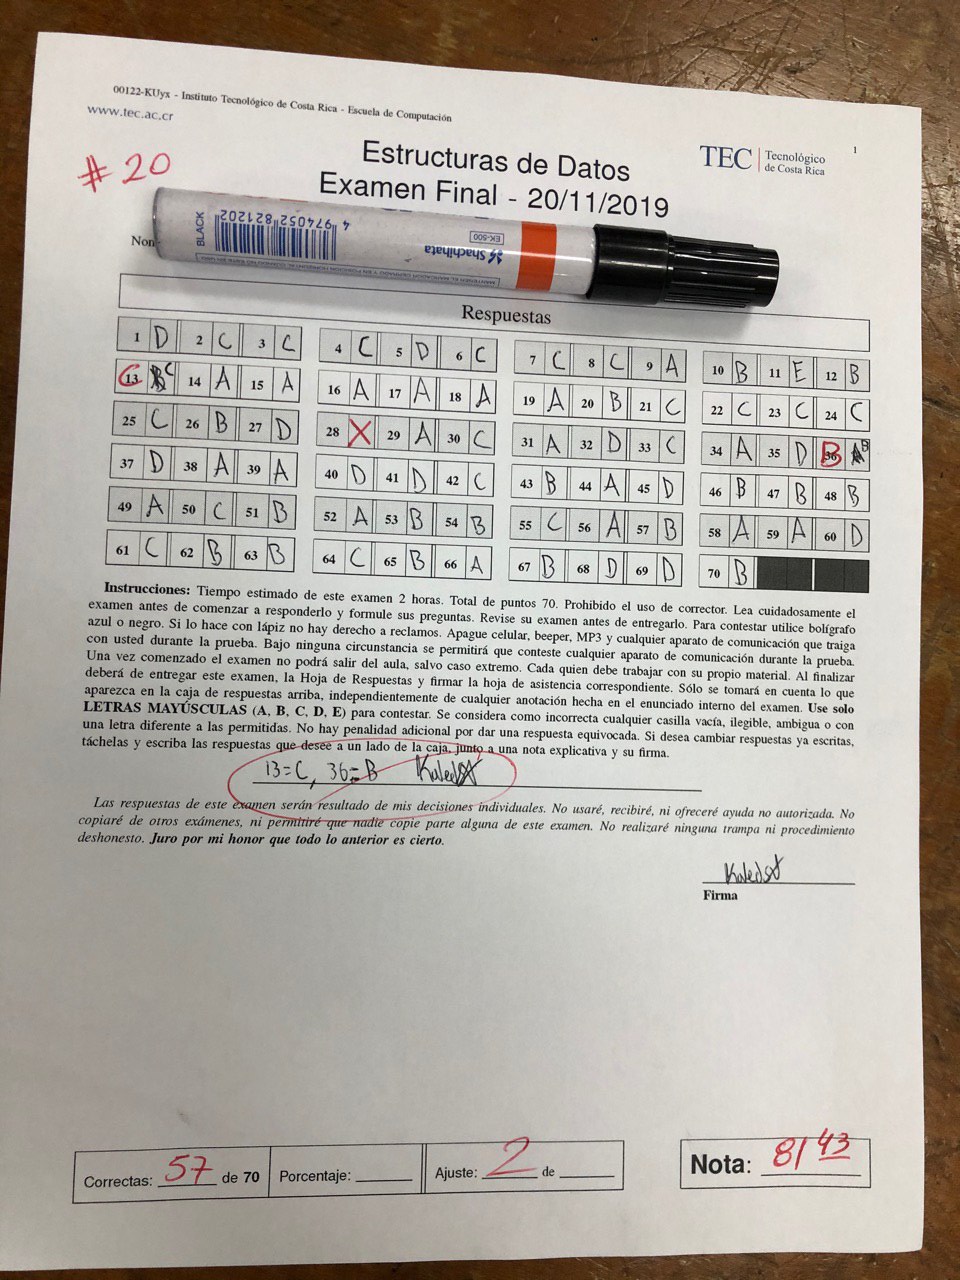 00122-KUyx - Instituto Tecnológico de Costa Rica - Escuela de Computación
www.tec.ac.cr
1
TEC Tecnológico de Costa Rica
# 20
Estructuras de Datos
Examen Final - 20/11/2019
4 974052 821202
BLACK
Shachihata
EK-500
Respuestas
1 D 2 C 3 C 4 C 5 D 6 C 7 C 8 C 9 A 10 B 11 E 12 B
C 13 C 14 A 15 A 16 A 17 A 18 A 19 A 20 B 21 C 22 C 23 C 24 C
25 C 26 B 27 D 28 X 29 A 30 C 31 A 32 D 33 C 34 A 35 D B 36 B
37 D 38 A 39 A 40 D 41 D 42 C 43 B 44 A 45 D 46 B 47 B 48 B
49 A 50 C 51 B 52 A 53 B 54 B 55 C 56 A 57 B 58 A 59 A 60 D
61 C 62 B 63 B 64 C 65 B 66 A 67 B 68 D 69 D 70 B
Instrucciones: Tiempo estimado de este examen 2 horas. Total de puntos 70. Prohibido el uso de corrector. Lea cuidadosamente el
examen antes de comenzar a responderlo y formule sus preguntas. Revise su examen antes de entregarlo. Para contestar utilice bolígrafo
azul o negro. Si lo hace con lápiz no hay derecho a reclamos. Apague celular, beeper, MP3 y cualquier aparato de comunicación que traiga
con usted durante la prueba. Bajo ninguna circunstancia se permitirá que conteste cualquier aparato de comunicación durante la prueba.
Una vez comenzado el examen no podrá salir del aula, salvo caso extremo. Cada quien debe trabajar con su propio material. Al finalizar
deberá de entregar este examen, la Hoja de Respuestas y firmar la hoja de asistencia correspondiente. Sólo se tomará en cuenta lo que
aparezca en la caja de respuestas arriba, independientemente de cualquier anotación hecha en el enunciado interno del examen. Use solo
LETRAS MAYÚSCULAS (A, B, C, D, E) para contestar. Se considera como incorrecta cualquier casilla vacía, ilegible, ambigua o con
una letra diferente a las permitidas. No hay penalidad adicional por dar una respuesta equivocada. Si desea cambiar respuestas ya escritas,
táchelas y escriba las respuestas que desee a un lado de la caja, junto a una nota explicativa y su firma.
13=C, 36=B
Las respuestas de este examen serán resultado de mis decisiones individuales. No usaré, recibiré, ni ofreceré ayuda no autorizada. No
copiaré de otros exámenes, ni permitiré que nadie copie parte alguna de este examen. No realizaré ninguna trampa ni procedimiento
deshonesto. Juro por mi honor que todo lo anterior es cierto.
Firma
Correctas: 57 de 70 Porcentaje: Ajuste: 2 de
Nota: 81 43